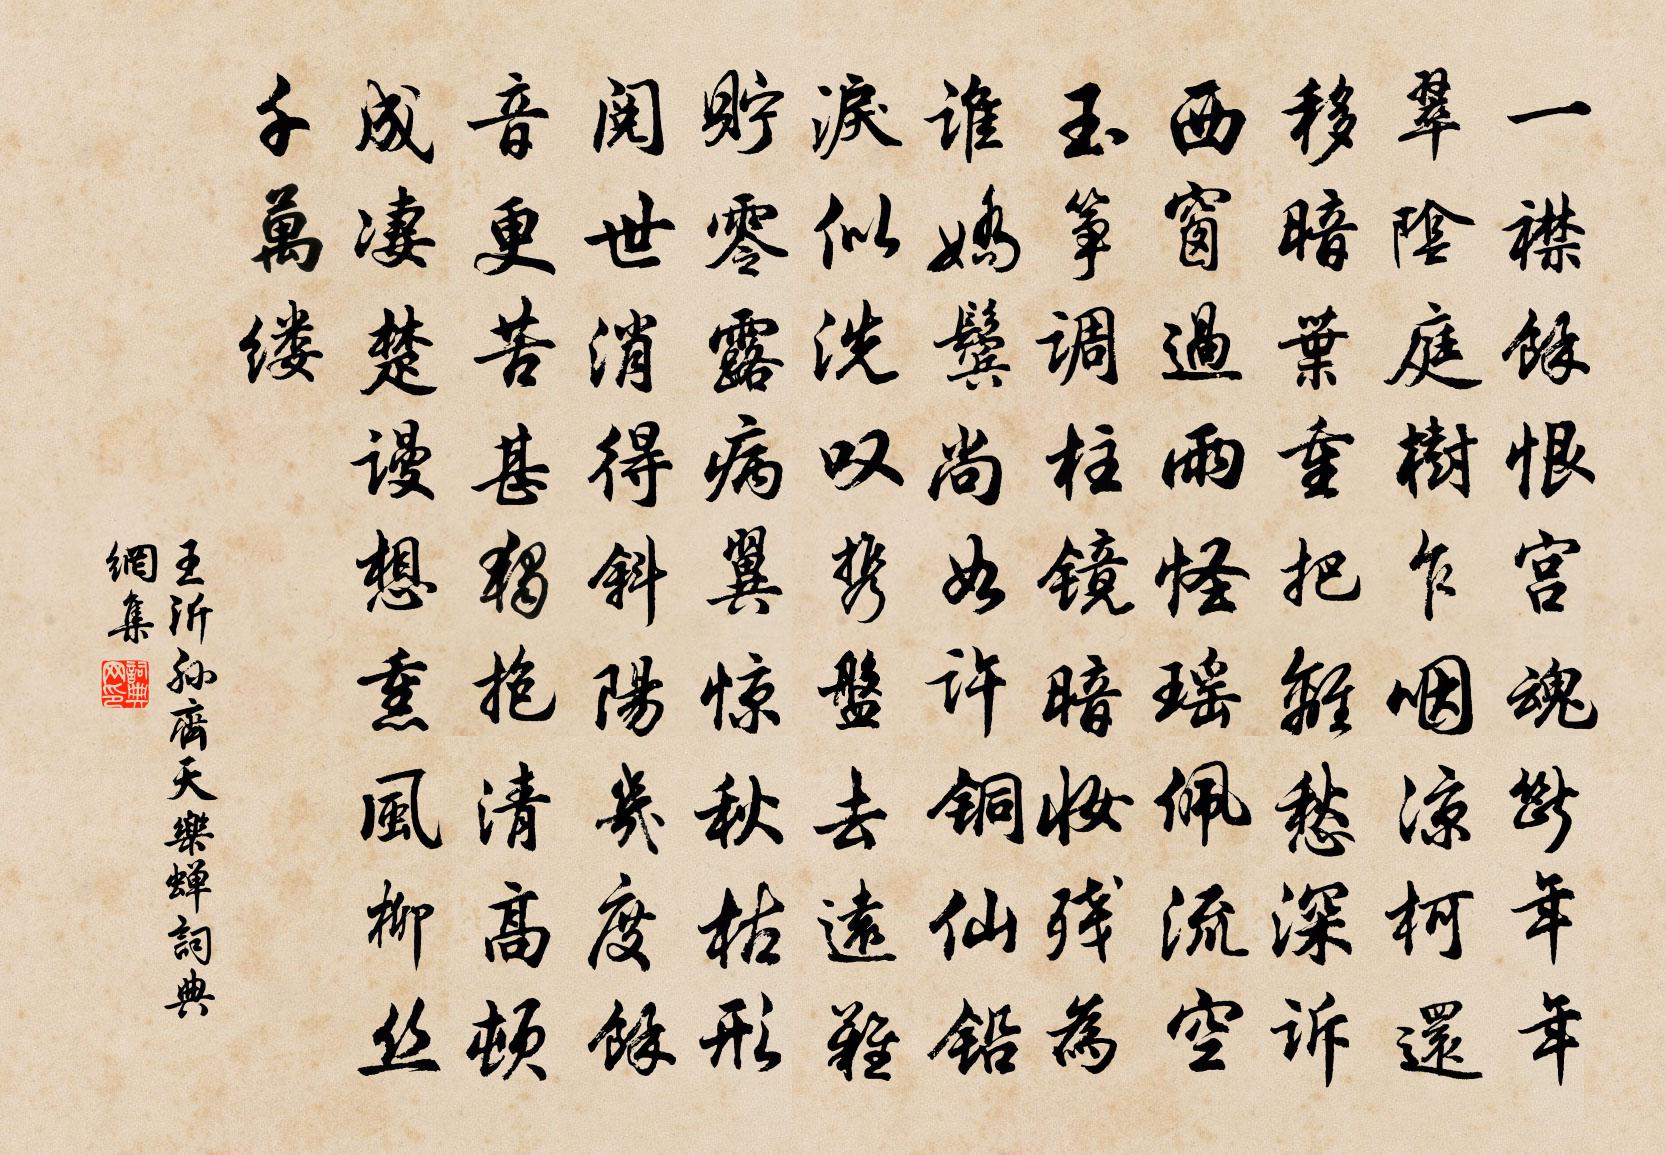 一襟餘恨宮魂斷年年
翠陰庭樹乍咽凉柯還
移暗葉重把離愁深訴
西窗過雨怪瑶佩流空
玉筝調柱镜暗妆残為
谁嬌鬓尚如许铜仙铅
淚似洗叹携盤去遠難
貯零露病翼惊秋枯形
阅世消得斜陽幾度餘
音更苦甚獨抱清高頓
成凄楚谩想熏風柳丝
千萬缕
王沂孙齊天樂蝉詞典
網集
詞典网印